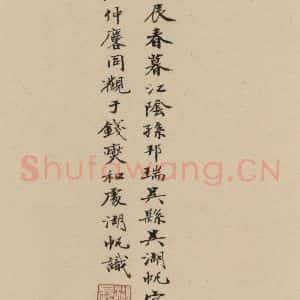 辰春暮江陰孫邦瑞吳縣吳湖帆
仲麐同觀于錢奐和處湖帆識
Shufawang.CN